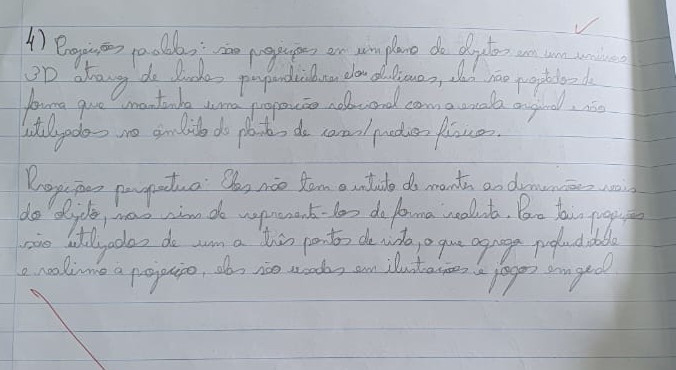 4) Projeições paralelas: são projeições em um plano de objetos em um universo
3D atravez de linhas perpendiculares e/ou oblicuas, elas são projetadas de
forma que mantenha uma proporção relacional com a escala original e são
utilizados no âmbito de plantas de casas/predios físicos.
Projeições perspectiva: Elas não tem o intuito de manter as dimensões reais
do objeto, mas sim de representá-los de forma realista. Para tais projeções
são utilizados de um a três pontos de vista, o que agrega profudidade
e realismo a projeição, elas são usadas em ilustrações e jogos em geral.